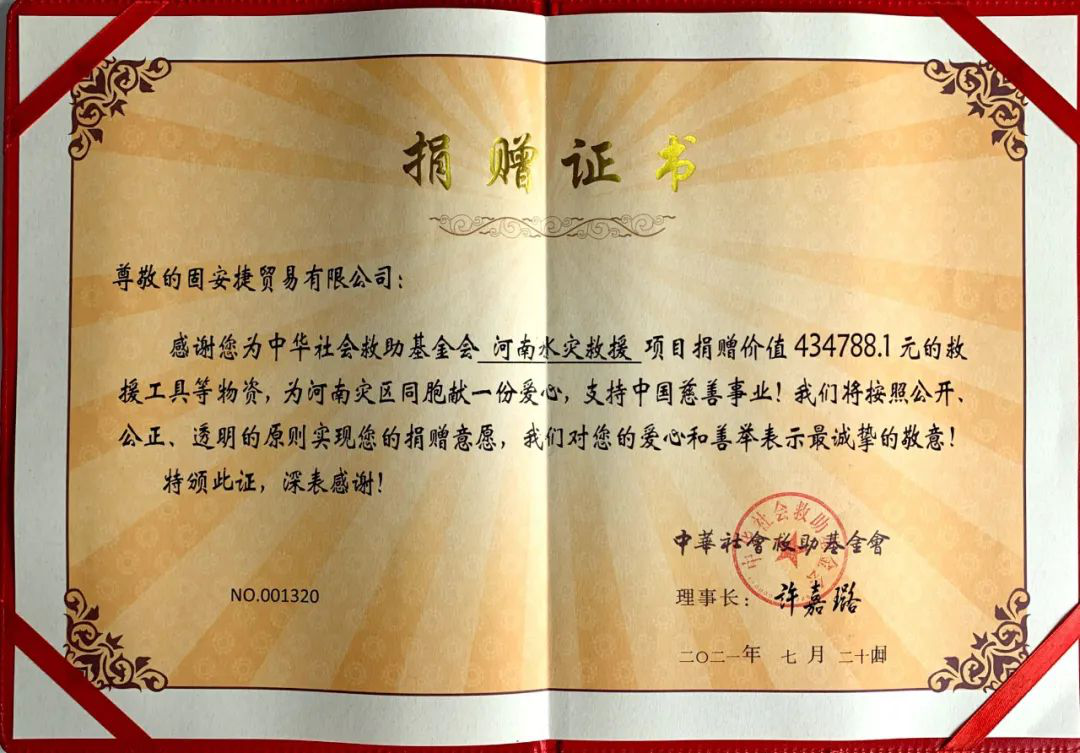 捐赠证书
尊敬的固安捷贸易有限公司：
感谢您为中华社会救助基金会 河南水灾救援 项目捐赠价值 434788.1 元的救
援工具等物资，为河南灾区同胞献一份爱心，支持中国慈善事业！我们将按照公开、
公正、透明的原则实现您的捐赠意愿，我们对您的爱心和善举表示最诚挚的敬意！
特颁此证，深表感谢！
中華社會救助基金會
中华社会救助基金会
NO.001320
理事长：许嘉璐
二〇二一年 七月 二十四